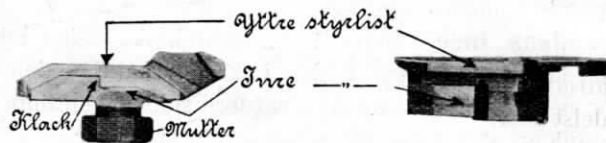 Yttre styrlist
Inre —„—
Klack
Mutter